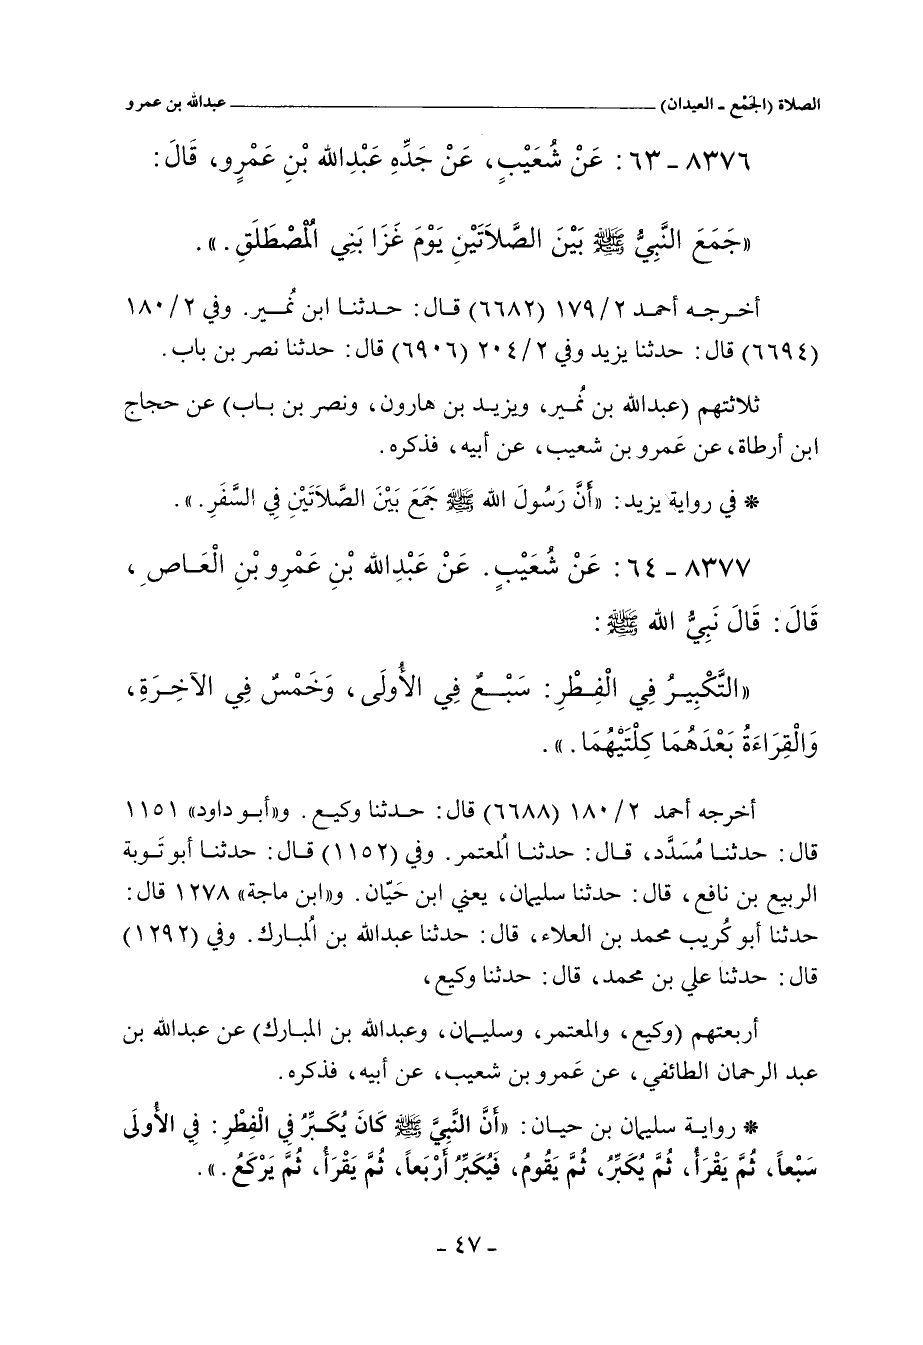 الصلاة (الجَمْع - العيدان) ــــــــــ عبدالله بن عمرو
٨٣٧٦ - ٦٣ : عَنْ شُعَيْبٍ، عَنْ جَدِّهِ عَبْدِالله بْنِ عَمْرٍو، قَالَ :
«جَمَعَ النَّبِيُّ ﷺ بَيْنَ الصَّلاَتَيْنِ يَوْمَ غَزَا بَنِي الْمُصْطَلَقِ . » .
أخرجه أحمد ٢/ ١٧٩ (٦٦٨٢) قال : حدثنا ابن نُمير. وفي ٢/ ١٨٠
(٦٦٩٤) قال : حدثنا يزيد وفي ٢/ ٢٠٤ (٦٩٠٦) قال : حدثنا نصر بن باب .
ثلاثتهم (عبدالله بن نُمير، ويزيد بن هارون، ونصر بن باب) عن حجاج
ابن أرطاة، عن عَمرو بن شعيب، عن أبيه، فذكره .
* في رواية يزيد : «أَنَّ رَسُولَ الله ﷺ جَمَعَ بَيْنَ الصَّلاَتَيْنِ فِي السَّفَرِ . » .
٨٣٧٧ - ٦٤ : عَنْ شُعَيْبٍ . عَنْ عَبْدِالله بْنِ عَمْرِو بْنِ الْعَاصِ ،
قَالَ : قَالَ نَبِيُّ الله ﷺ :
«التَّكْبِيرُ فِي الْفِطْرِ : سَبْعٌ فِي الأُولَى ، وَخَمْسٌ فِي الآخِرَةِ،
وَالْقِرَاءَةُ بَعْدَهُمَا كِلْتَيْهِمَا . » .
أخرجه أحمد ٢/ ١٨٠ (٦٦٨٨) قال : حدثنا وكيع . و«أبو داود» ١١٥١
قال : حدثنا مُسَدَّد، قال : حدثنا الُمعتمر. وفي (١١٥٢) قال : حدثنا أبو تَوبة
الربيع بن نافع، قال : حدثنا سليمان، يعني ابن حَيّان. و«ابن ماجة» ١٢٧٨ قال :
حدثنا أبو كُريب محمد بن العلاء، قال : حدثنا عبدالله بن الُمبارك. وفي (١٢٩٢)
قال : حدثنا علي بن محمد، قال : حدثنا وكيع،
أربعتهم (وكيع، والمعتمر، وسليمان، وعبدالله بن المبارك) عن عبدالله بن
عبد الرحمان الطائفي، عن عَمرو بن شعيب، عن أبيه، فذكره .
* رواية سليمان بن حيان : «أَنَّ النَّبِيَّ ﷺ كَانَ يُكَبِّرُ فِي الْفِطْرِ : فِي الأُولَى
سَبْعاً، ثُمَّ يَقْرَأُ، ثُمَّ يُكَبِّرُ، ثُمَّ يَقُومُ، فَيُكَبِّرُ أَرْبَعاً، ثُمَّ يَقْرَأُ، ثُمَّ يَرْكَعُ . » .
- ٤٧ -